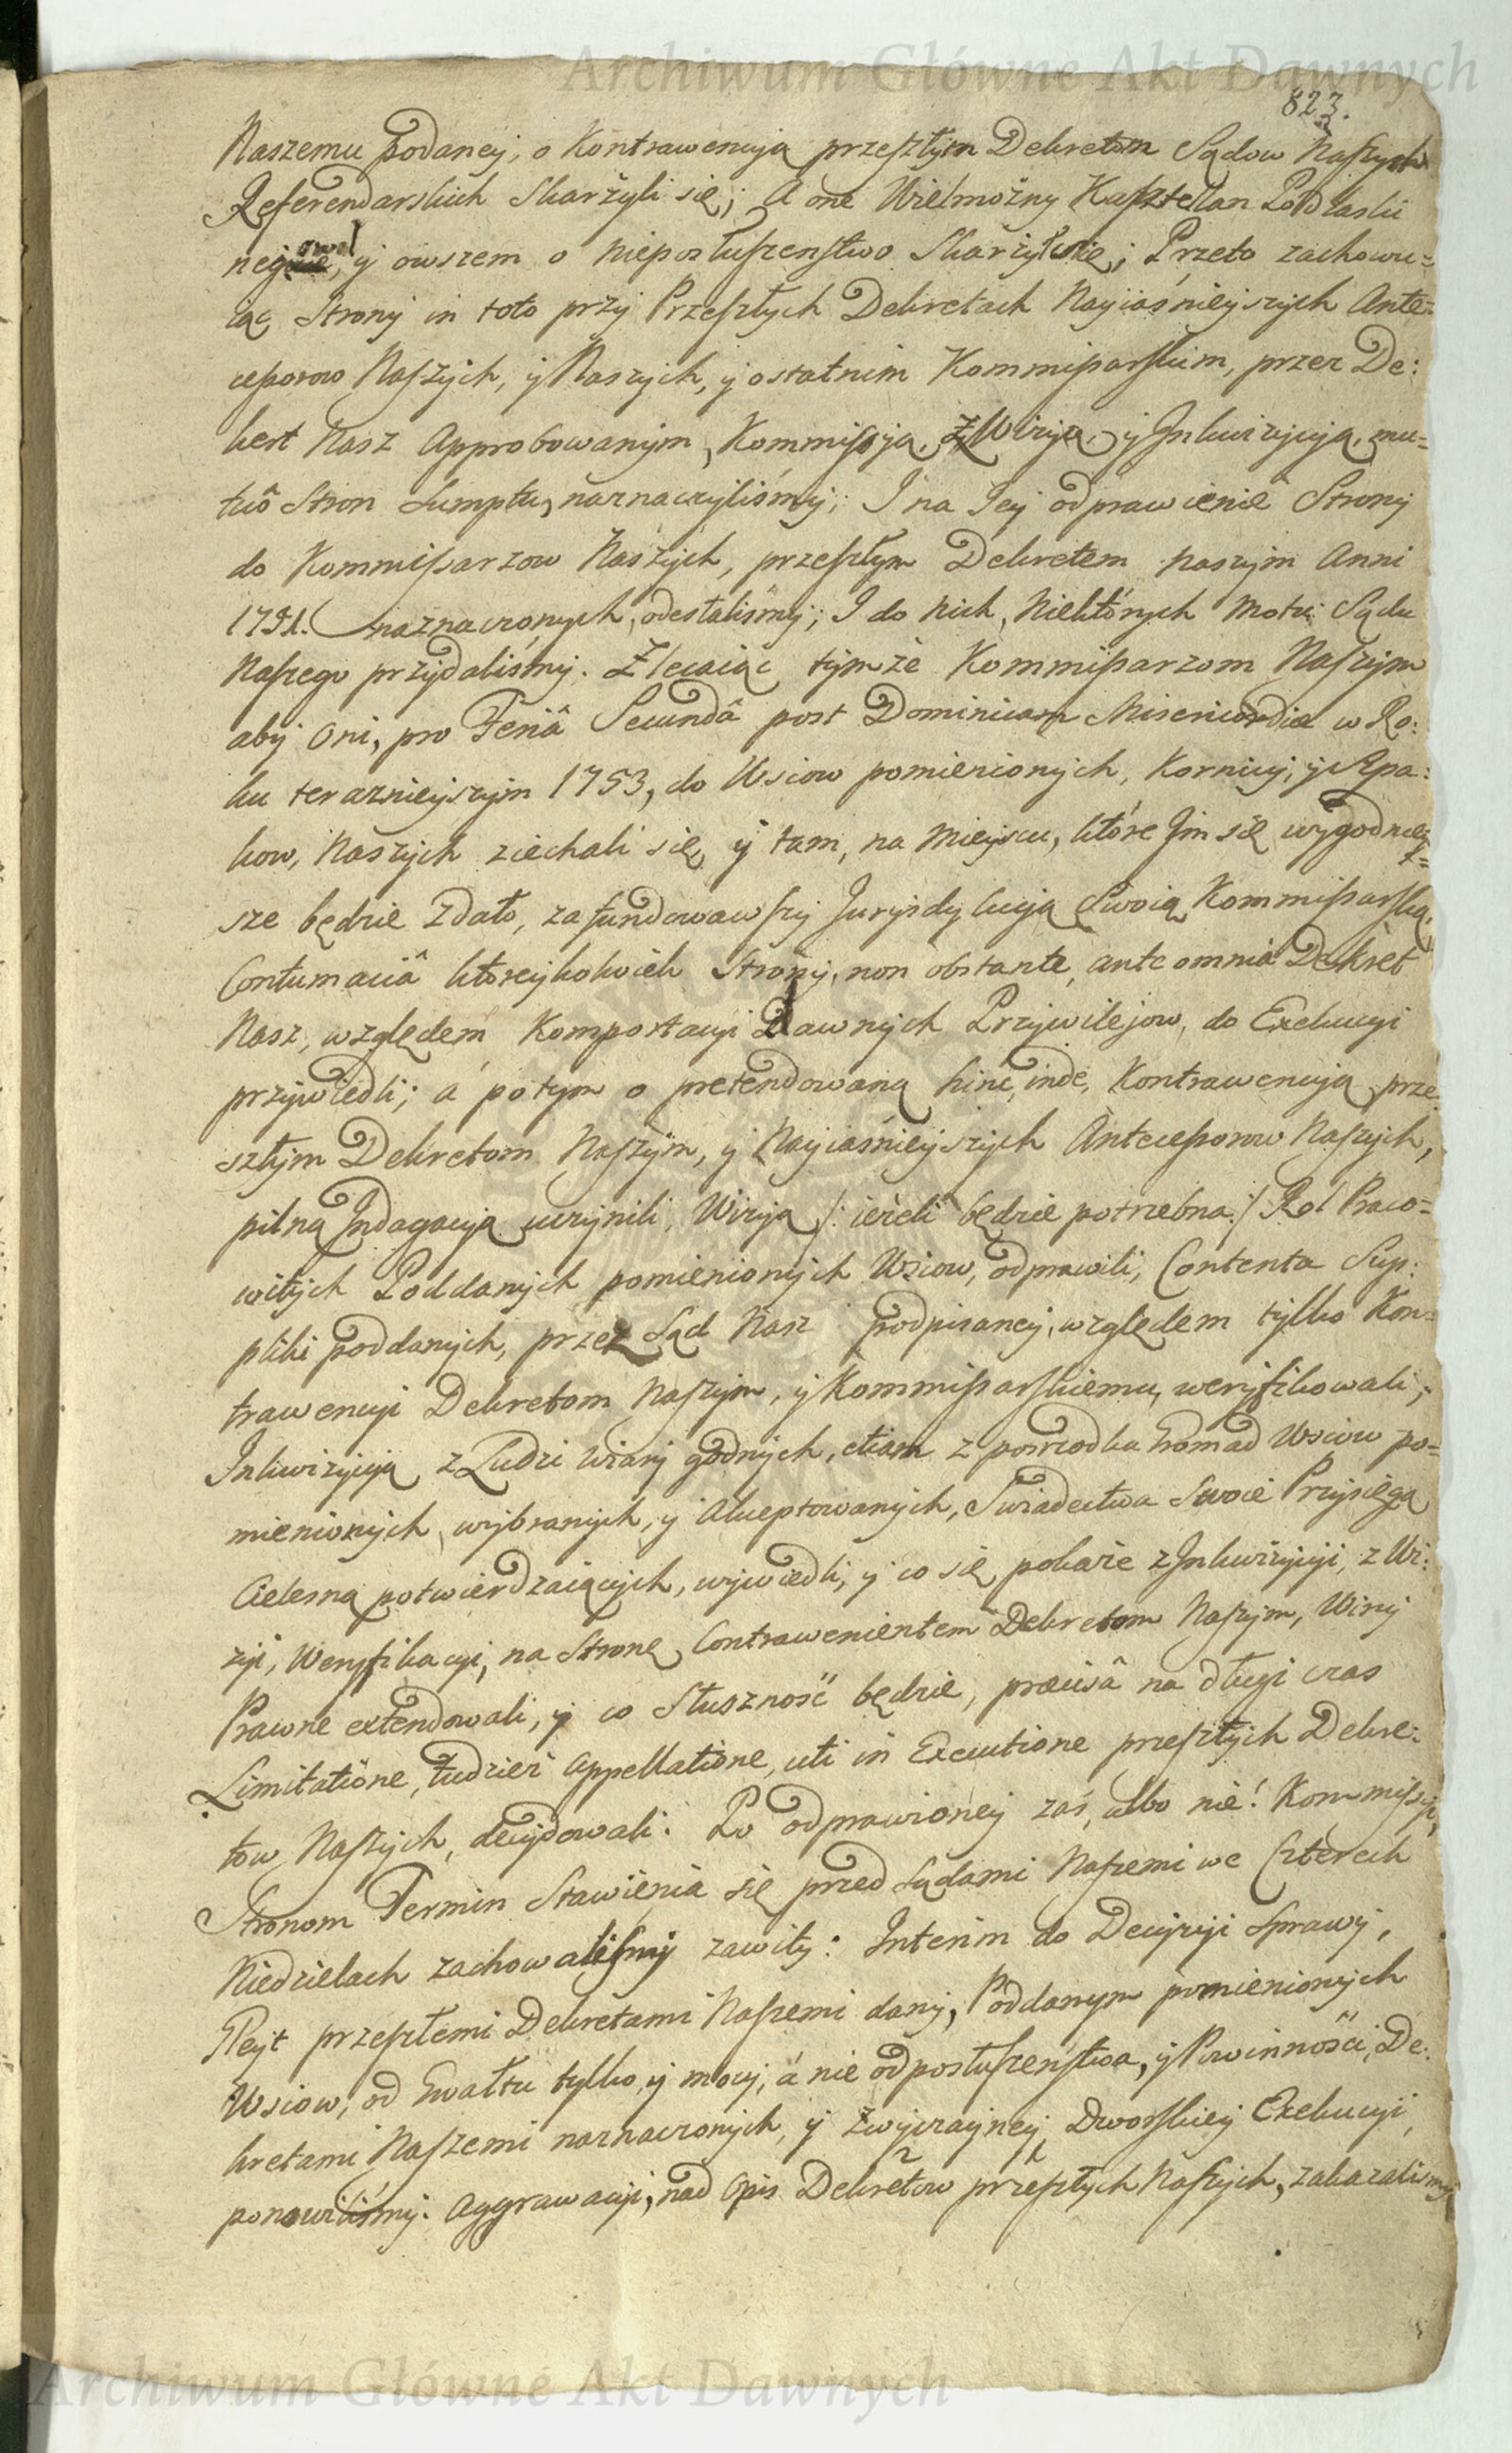 Archiwum Główne Akt Dawnych
823.
Naszemu podaney, o Kontrawencyą przeszłym Dekretom Sądow Naszych
Referendarskich Skarżyli się; A one Wielmożny Kasztellan Podlaski
negował, y owszem o nieposłuszenstwo Skarżył się; Przeto zachowu=
iąc Strony in toto przy Przeszłych Dekretach Nayiaśnieyszych Ante=
cessorow Naszych, y Naszych, y ostatnim Kommissarskim, przez De:
kret Nasz Approbowanym, Kommissyą, z Wizyą, y Inkwizycyą, mu=
tuô Stron Sumptu, naznaczyliśmy; I na Jey odprawienie Strony
do Kommissarzow Naszych, przeszłym Dekretem naszym Anni
1751. naznaczonych, odesłaliśmy; I do nich, Niektórych Motu Sądu
Naszego przydaliśmy. Zlecaiąc tymże Kommissarzom Naszym
aby oni, pro Feriâ Secundâ post Dominicam Misericordiæ w Ro:
ku teraznieyszym 1753, do Wsiow pomienionych, Kornicy, y Rpa:
kow, Naszych ziechali się, y tam, na Mieyscu, które Jm się wygodniey=
sze będzie Zdało, zafundowawszy Jurysdykcyą Swoią Kommissarską,
Contumaciâ ktoreykolwiek Strony, non obstante, ante omnia Dekret
Nasz, względem Komportacyi Dawnych Przywilejow, do Exekucyi
przywiedli; á potym o pretendowaną hinc, inde, Kontrawencyą prze:
szłym Dekretom Naszym, y Nayiaśnieyszych Antecessorow Naszych,
pilną Jndagacyą uczynili, Wizyą /: ieżeli będzie potrzebna :/ Rol Praco=
witych Poddanych pomienionych Wsiow, odprawili, Contenta Sup:
pliki poddanych, przez Sąd Nasz podpisaney, względem tylko Kon=
trawencyi Dekretom Naszym, y Kommissarskiemu, weryfikowali;
Inkwizycyą z Ludzi wiary godnych, etiam z posrzodka Gromad Wsiow po=
mienionych, wybranych, y Akceptowanych, Swiadectwa Swoie Przysięgą
Cielesną potwierdzaiących, wywiedli, y co się pokaże z Inkwizycyi, z Wi:
zyi, Weryfikacyi, na Stronę Contravenientem Dekretom Naszym, Winy
Prawne extendowali, y co Słuszność będzie, præcisâ na długi czas
Limitatione, tudzież Appellatione, uti in Executione przeszłych Dekre:
tow Naszych, decydowali. Po odprawioney zaś, albo nie! Kommissyi,
Stronom Termin Stawienia się przed Sądami Naszemi we Czterech
Niedzielach zachowaliśmy zawity: Interim do Decyzyi Sprawy,
Gleyt przeszłemi Dekretami Naszemi dany, Poddanym pomienionych
Wsiow, od Gwałtu tylko, y mocy, á nie od posłuszeństwa, y Powinności, De:
kretami Naszemi naznaczonych, y zwyczayney Dworskiey Exekucyi,
ponowiliśmy. Aggrawacyi, nad Opis Dekretow przeszłych Naszych, zakazaliśmy
Archiwum Główne Akt Dawnych